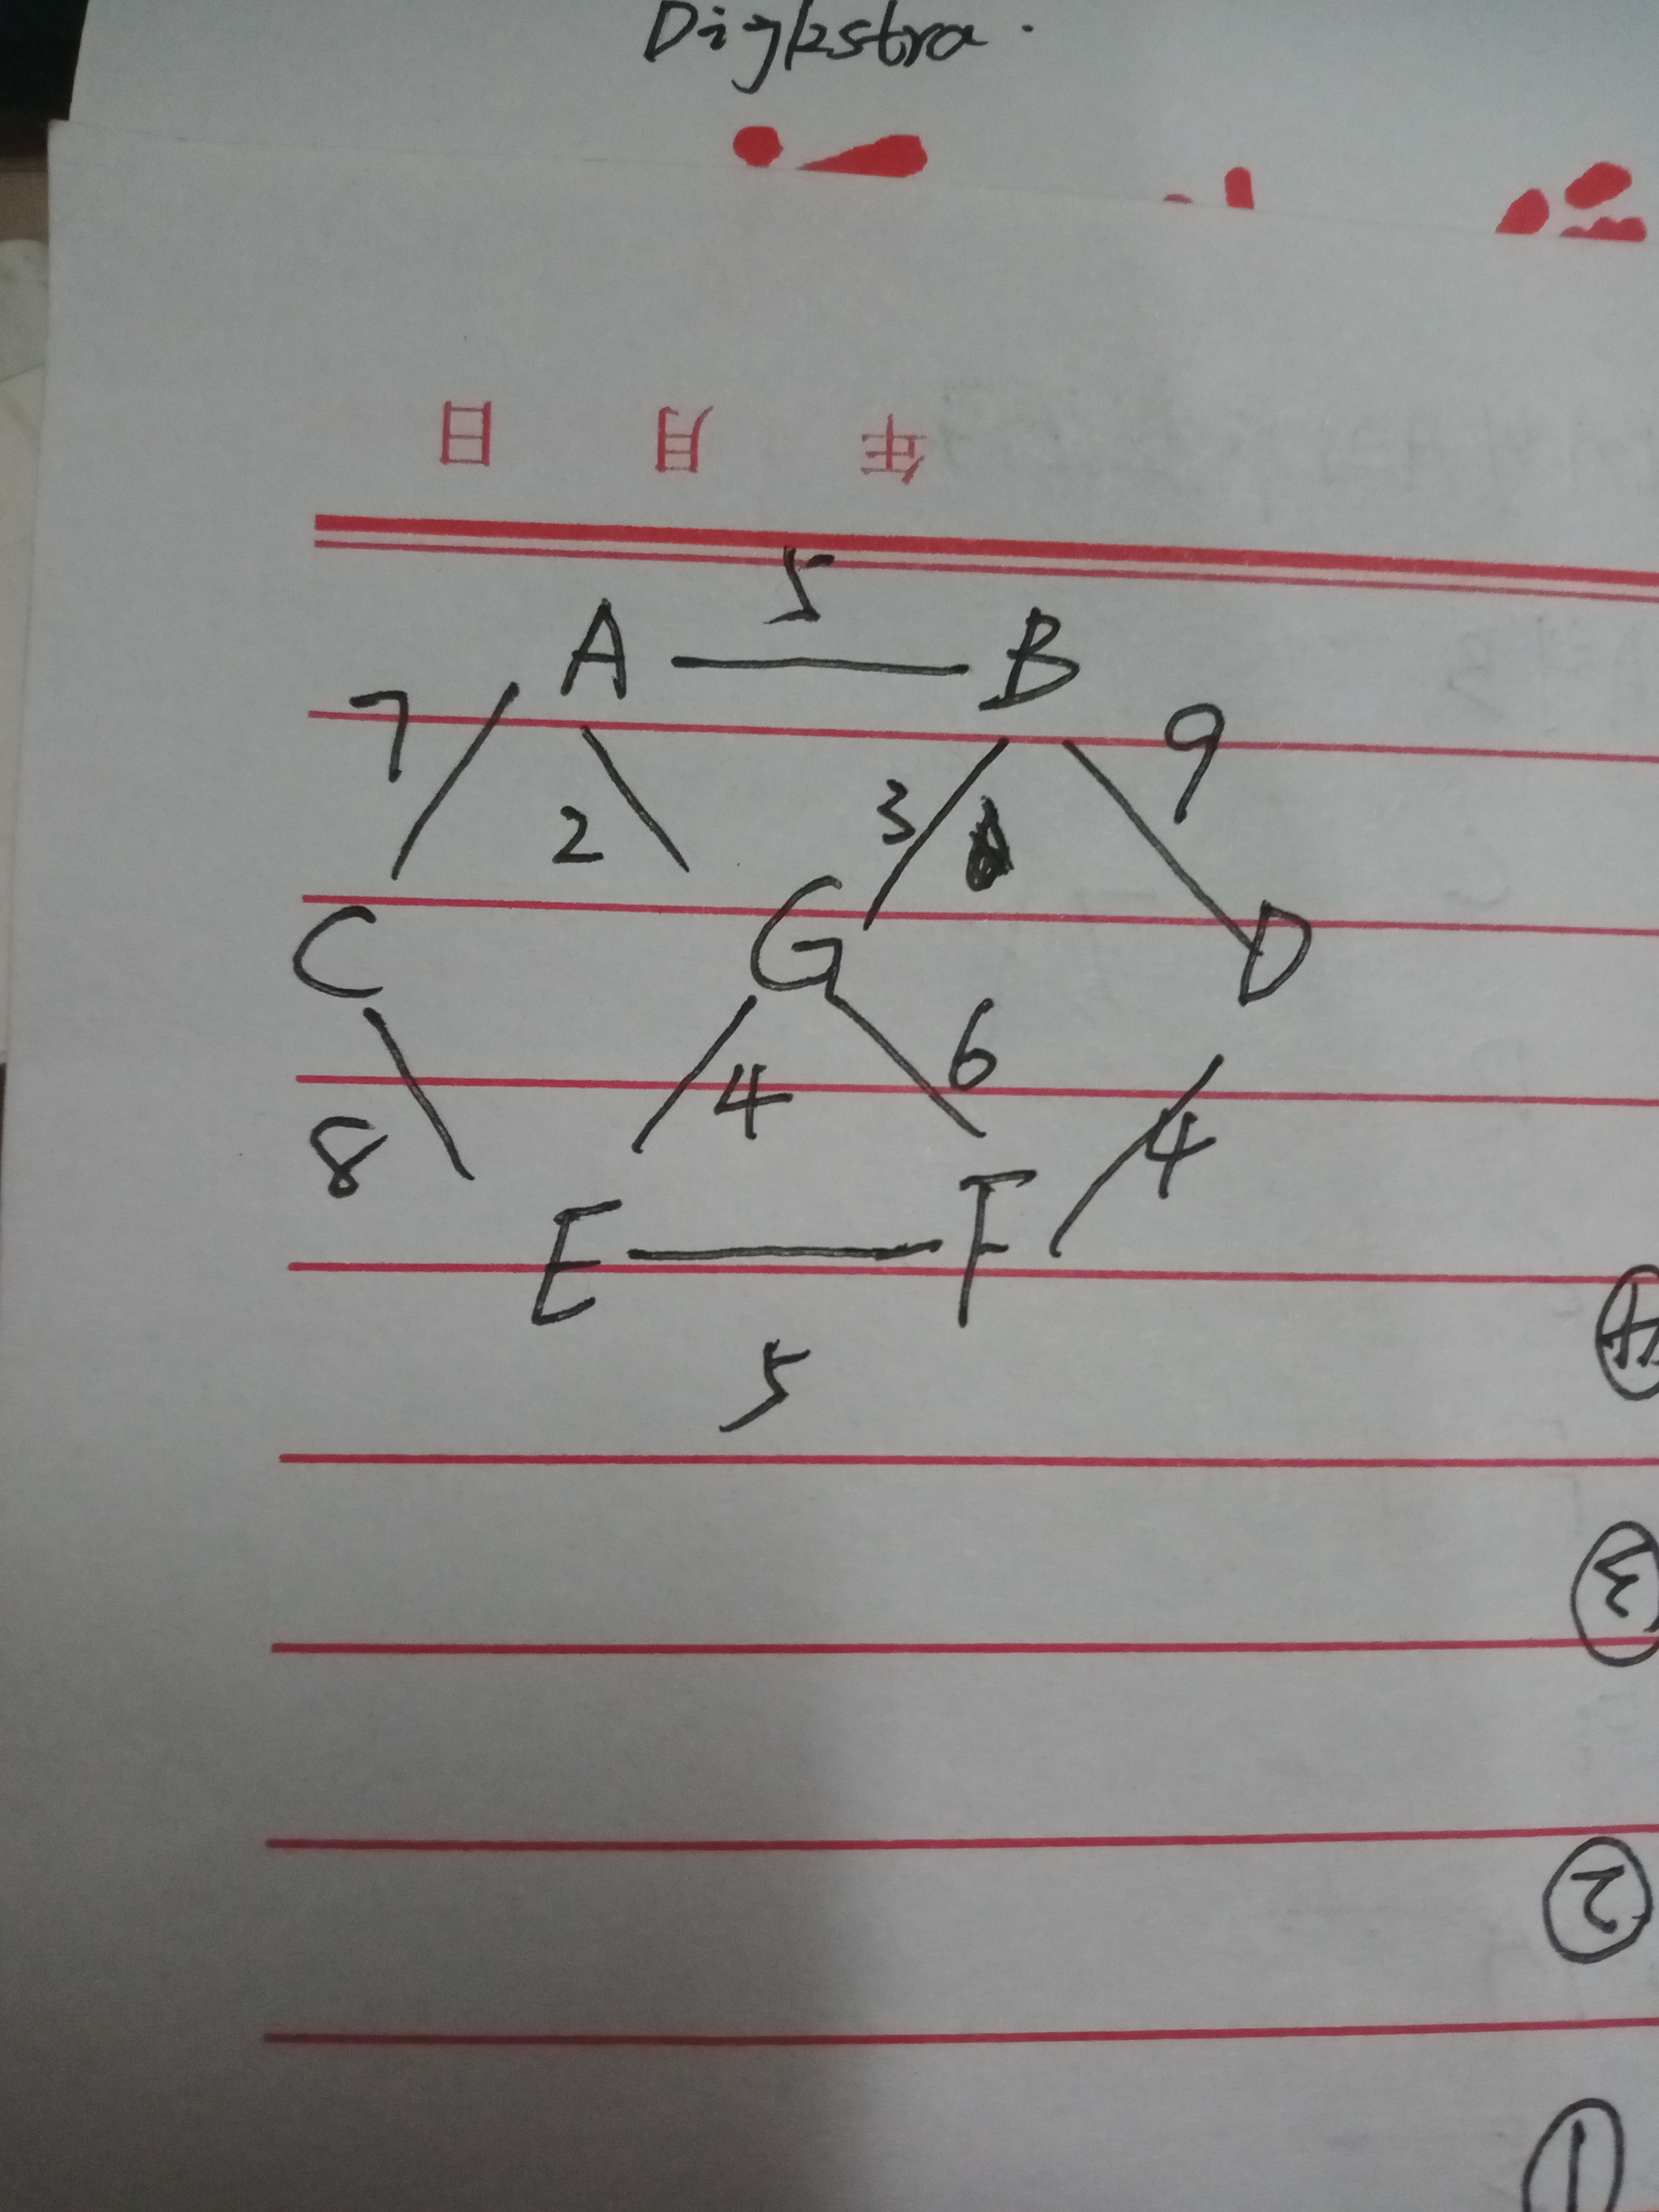 Digkstra.
日 月 年
5
A B
7 9
2 3
C G D
4 6
8 4
E F
5
4
3
2
1